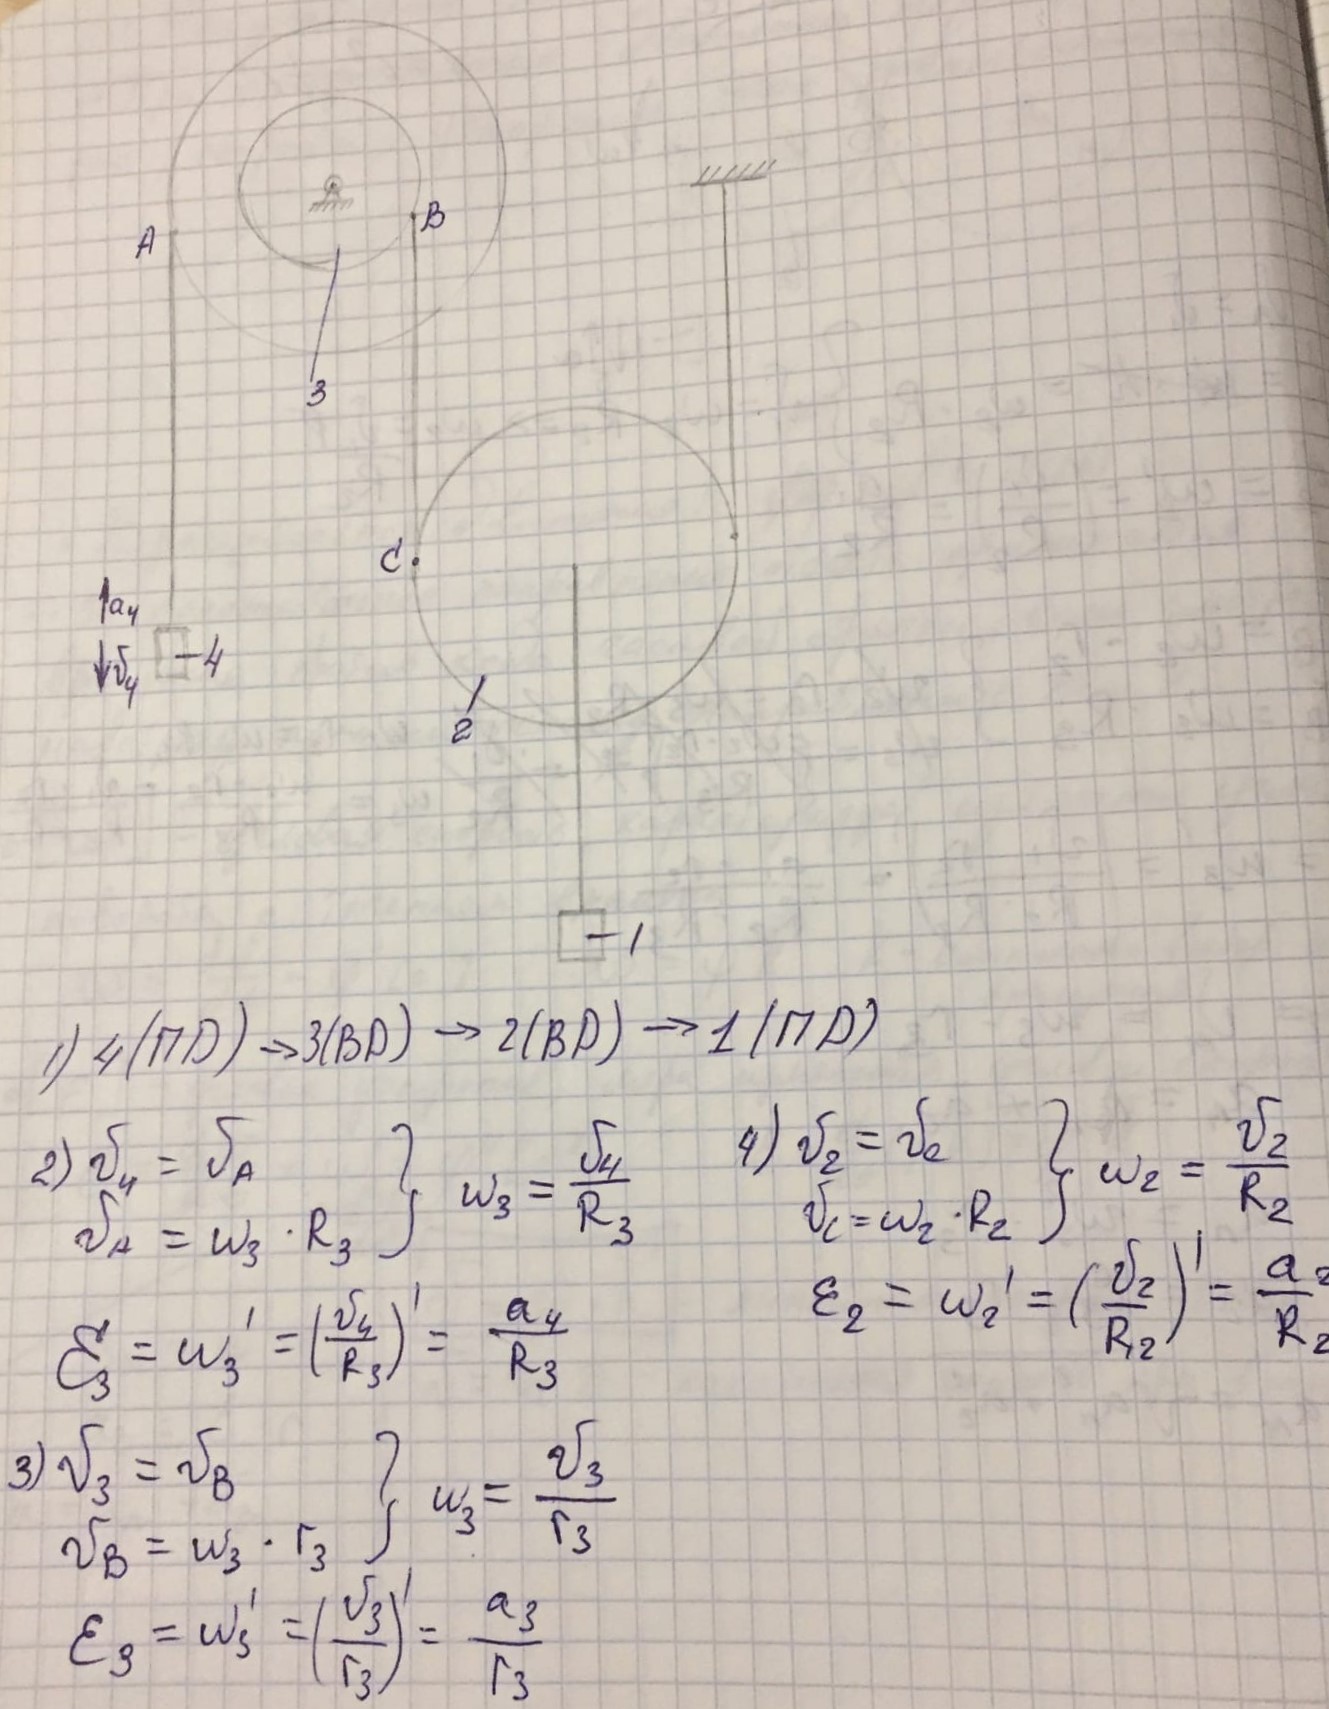 A
B
3
C
a₄
v₄
4
2
1
1) 4(ПD) → 3(BD) → 2(BD) → 1(ПD)
2) v₄ = v_A
v_A = w₃ · R₃ } w₃ = v₄/R₃
ε₃ = w₃' = (v₄/R₃)' = a₄/R₃
3) v₃ = v_B
v_B = w₃ · r₃ } w₃ = v₃/r₃
ε₃ = w₃' = (v₃/r₃)' = a₃/r₃
4) v₂ = v_c
v_c = w₂ · R₂ } w₂ = v₂/R₂
ε₂ = w₂' = (v₂/R₂)' = a₂/R₂